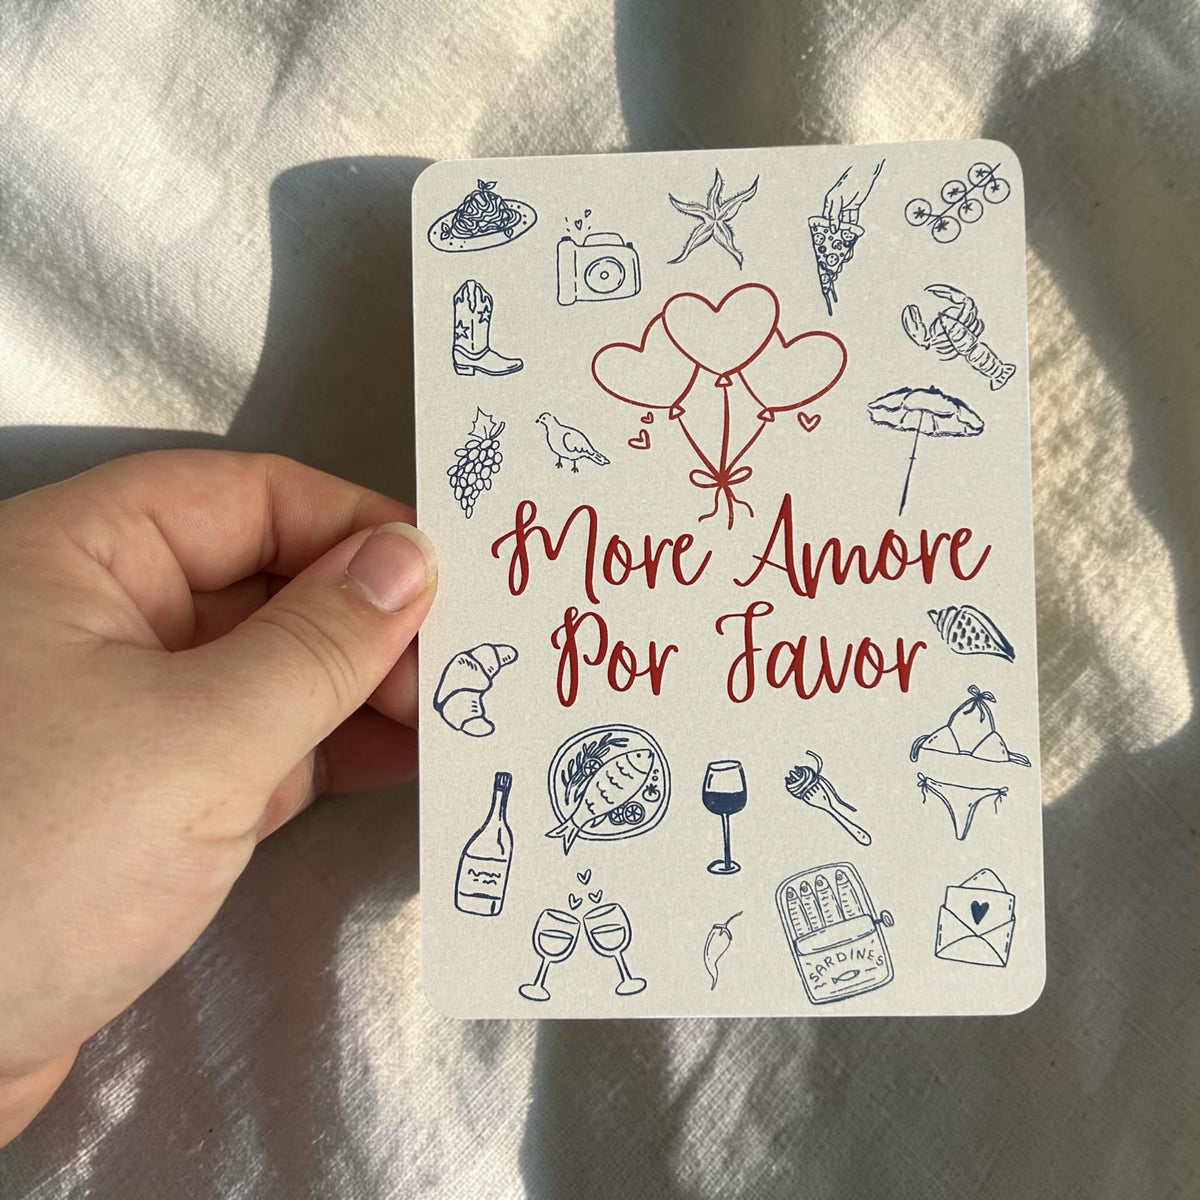 More Amore
Por Favor
SARDINES